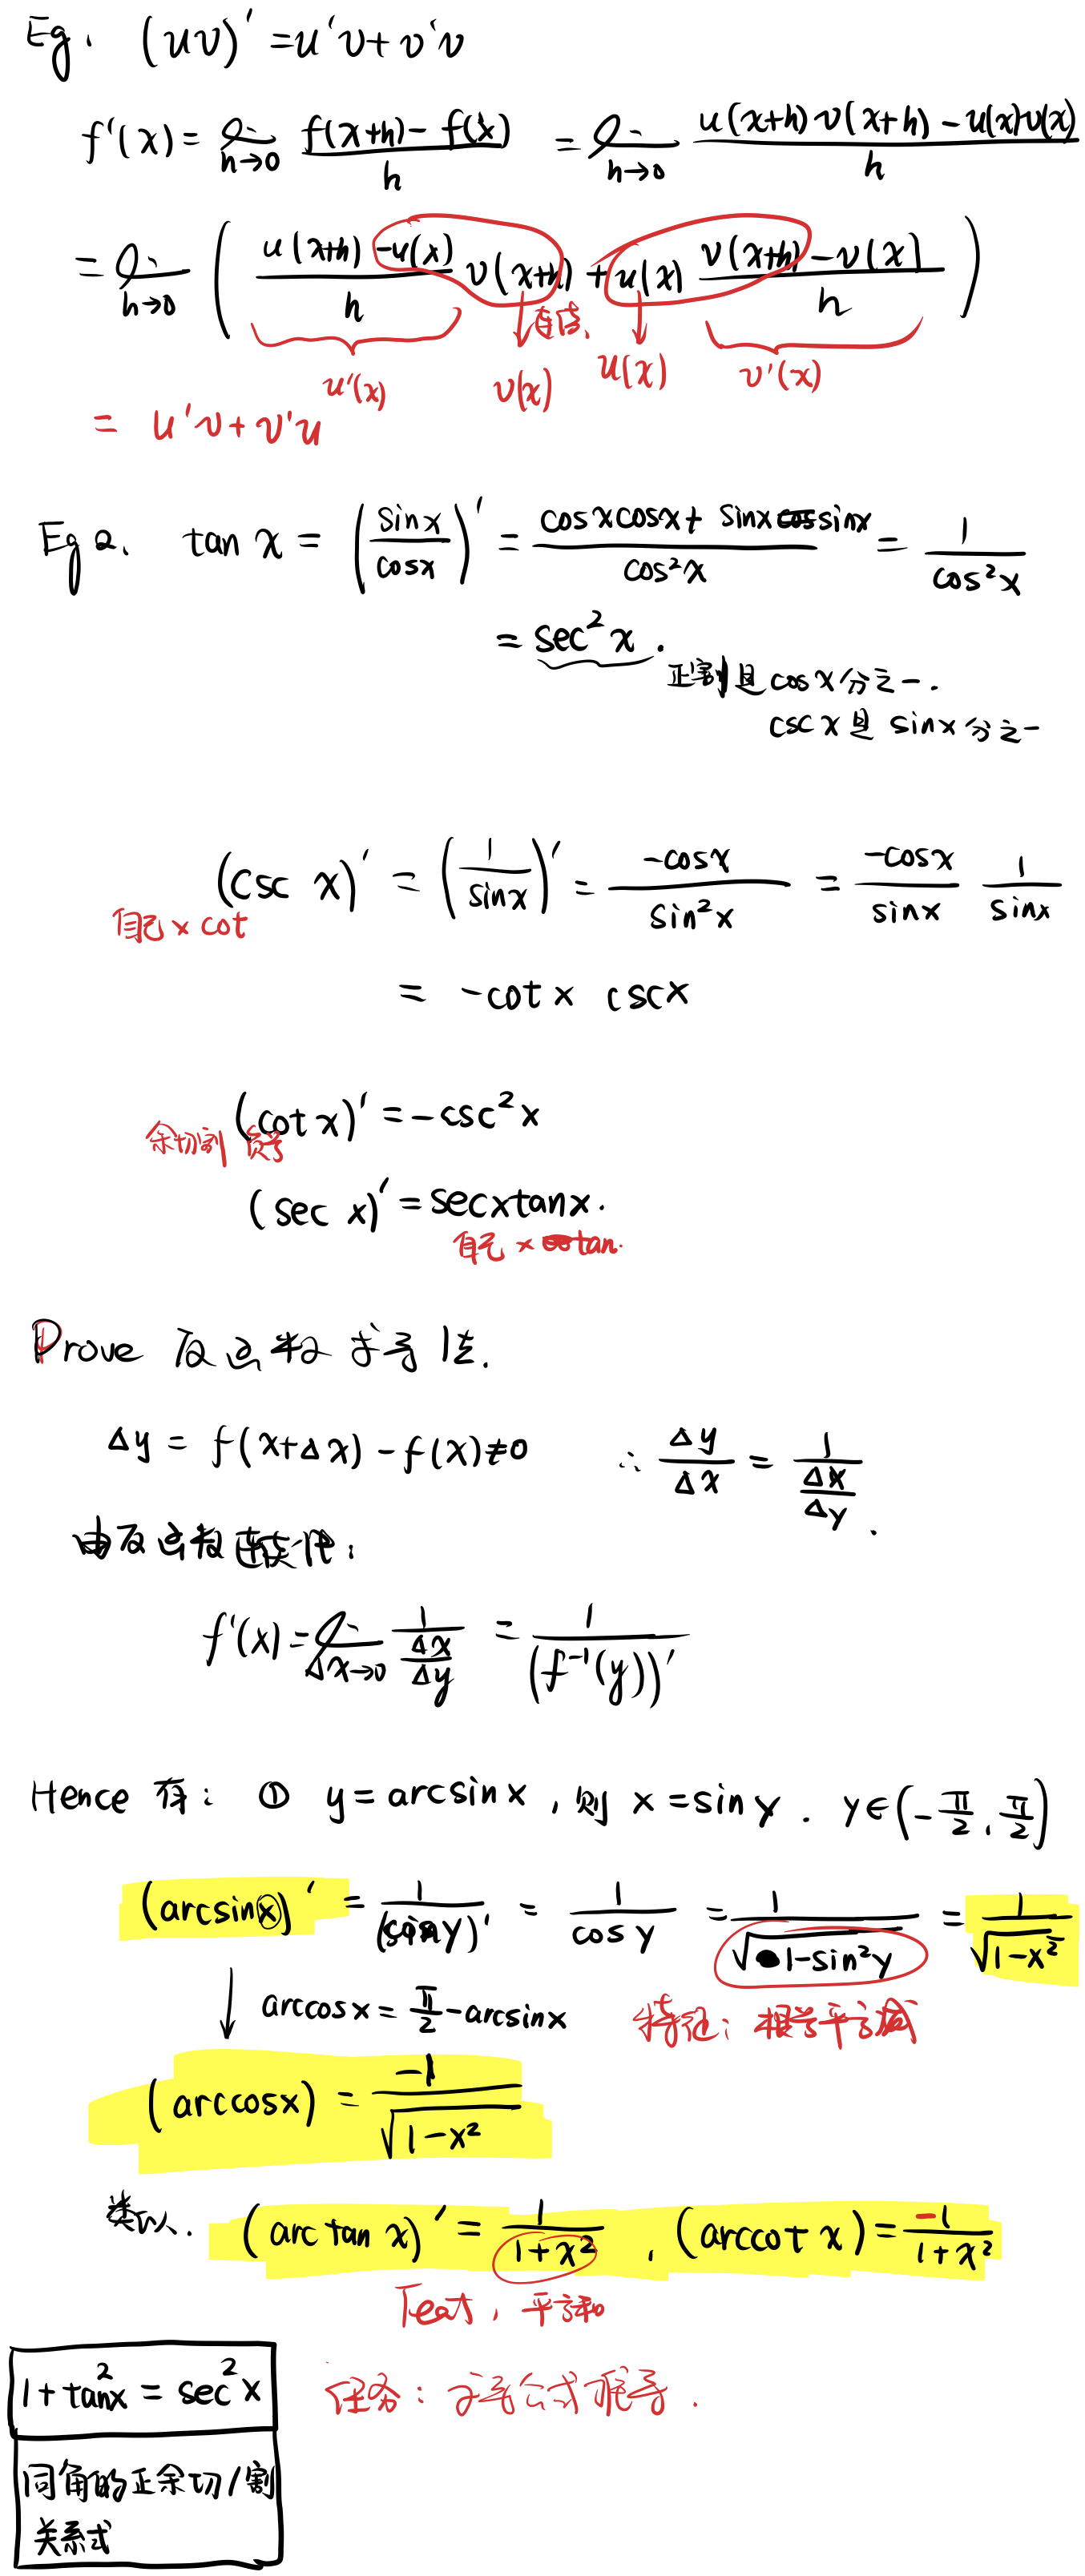 Eg. (uv)' = u'v + v'v
f'(x) = lim h→0 f(x+h) - f(x) / h = lim h→0 u(x+h)v(x+h) - u(x)v(x) / h
= lim h→0 ( u(x+h) - u(x) / h v(x+h) + u(x) v(x+h) - v(x) / h )
连续.
u'(x) v(x) u(x) v'(x)
= u'v + v'u
Eg 2. tan x = (sinx / cosx)' = cosxcosx + sinx sinx / cos²x = 1 / cos²x
= sec²x.
正割是cosx分之一.
cscx是 sinx分之一
(csc x)' = (1 / sinx)' = -cosx / sin²x = -cosx / sinx 1 / sinx
自己×cot
= -cotx cscx
(cotx)' = -csc²x
余切割 负号
(sec x)' = secxtanx.
自己×tan.
Prove 反函数求导法.
Δy = f(x+Δx) - f(x) ≠ 0 ∴ Δy / Δx = 1 / (Δx / Δy).
由反函数连续性:
f'(x) = lim Δx→0 1 / (Δx / Δy) = 1 / (f⁻¹(y))'
Hence 有: ① y = arcsinx, 则 x = siny. y∈(-π/2, π/2)
(arcsinx)' = 1 / (siny)' = 1 / cosy = 1 / √1-sin²y = 1 / √1-x²
↓ arccosx = π/2 - arcsinx 特征: 根号平方减
(arccosx) = -1 / √1-x²
类似. (arctan x)' = 1 / 1+x², (arccot x) = -1 / 1+x²
Feat, 平方和
1+tan²x = sec²x
任务: 求导公式推导.
同角的正余切/割
关系式